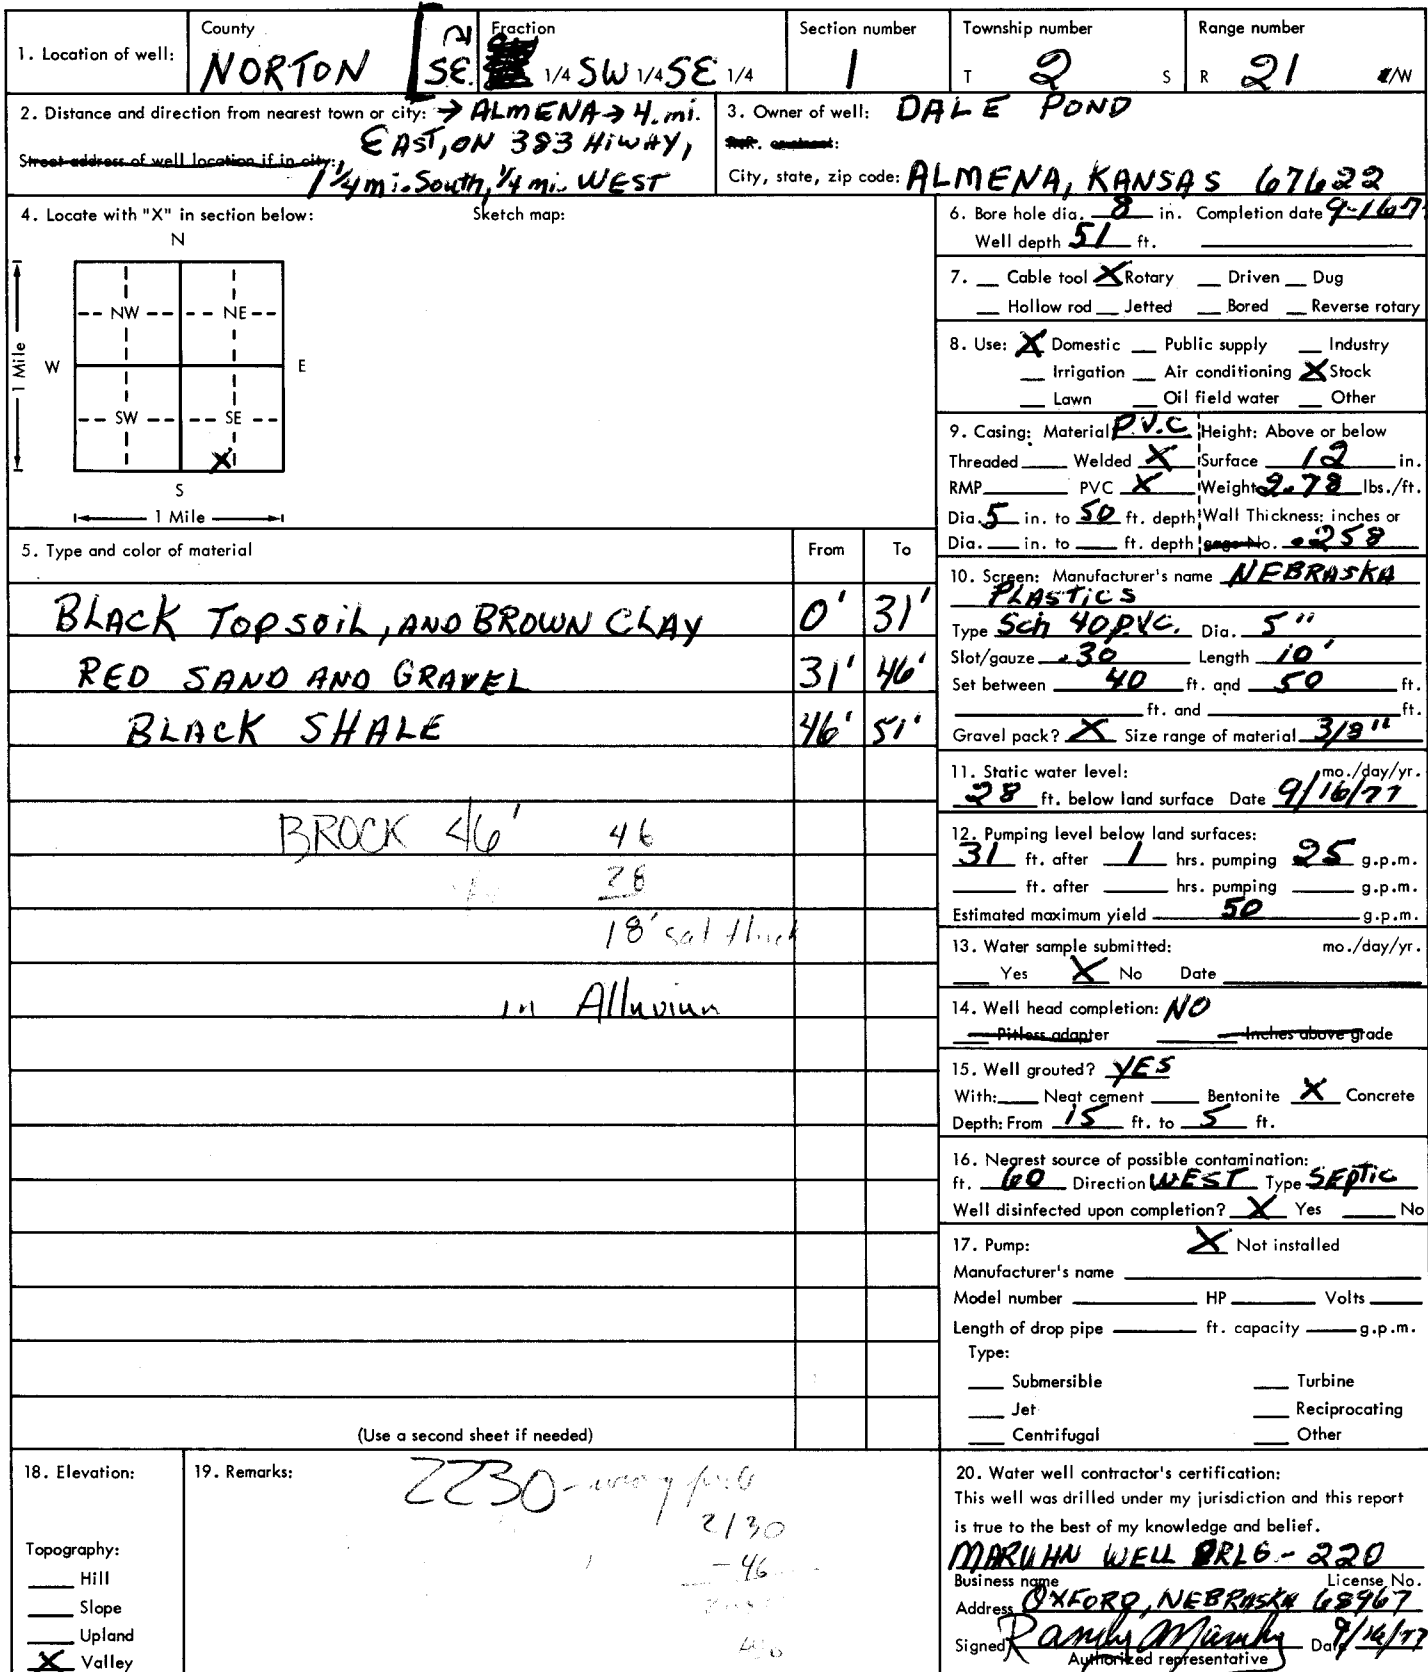 1. Location of well:
County
NORTON
SE
Fraction
1/4 SW 1/4 SE 1/4
Section number
1
Township number
T 2 S
Range number
R 21 E/W
2. Distance and direction from nearest town or city: → ALMENA → 4. mi.
EAST, ON 383 HiWAY,
Street address of well location if in city:
1 1/4 mi. South, 1/4 mi. WEST
3. Owner of well: DALE POND
City, state, zip code: ALMENA, KANSAS 67622
4. Locate with "X" in section below:
Sketch map:
N
NW NE
W E
1 Mile
SW SE
X
S
1 Mile
5. Type and color of material From To
BLACK TOPSOIL, AND BROWN CLAY 0' 31'
RED SAND AND GRAVEL 31' 46'
BLACK SHALE 46' 51'
BROCK 46' 46
28
18' sat thick
in Alluvium
(Use a second sheet if needed)
6. Bore hole dia. 8 in. Completion date 9-167
Well depth 51 ft.
7. __ Cable tool X Rotary __ Driven __ Dug
__ Hollow rod __ Jetted __ Bored __ Reverse rotary
8. Use: X Domestic __ Public supply __ Industry
__ Irrigation __ Air conditioning X Stock
__ Lawn __ Oil field water __ Other
9. Casing: Material P.V.C Height: Above or below
Threaded __ Welded X Surface 12 in.
RMP __ PVC X Weight 2.78 lbs./ft.
Dia. 5 in. to 50 ft. depth Wall Thickness: inches or
Dia. __ in. to __ ft. depth gage No. .258
10. Screen: Manufacturer's name NEBRASKA
PLASTICS
Type Sch 40 P.V.C. Dia. 5"
Slot/gauze .30 Length 10'
Set between 40 ft. and 50 ft.
__ ft. and __ ft.
Gravel pack? X Size range of material 3/8"
11. Static water level: mo./day/yr.
28 ft. below land surface Date 9/16/77
12. Pumping level below land surfaces:
31 ft. after 1 hrs. pumping 25 g.p.m.
__ ft. after __ hrs. pumping __ g.p.m.
Estimated maximum yield 50 g.p.m.
13. Water sample submitted: mo./day/yr.
__ Yes X No Date __
14. Well head completion: NO
__ Pitless adapter __ Inches above grade
15. Well grouted? YES
With: __ Neat cement __ Bentonite X Concrete
Depth: From 15 ft. to 5 ft.
16. Nearest source of possible contamination:
ft. 60 Direction WEST Type SEPTIC
Well disinfected upon completion? X Yes __ No
17. Pump: X Not installed
Manufacturer's name __
Model number __ HP __ Volts __
Length of drop pipe __ ft. capacity __ g.p.m.
Type:
__ Submersible __ Turbine
__ Jet __ Reciprocating
__ Centrifugal __ Other
18. Elevation:
Topography:
__ Hill
__ Slope
__ Upland
X Valley
19. Remarks:
2230
2130
-46
20. Water well contractor's certification:
This well was drilled under my jurisdiction and this report
is true to the best of my knowledge and belief.
MARUHN WELL DRLG - 220
Business name License No.
Address OXFORD, NEBRASKA 68967
Signed Date 9/16/77
Authorized representative